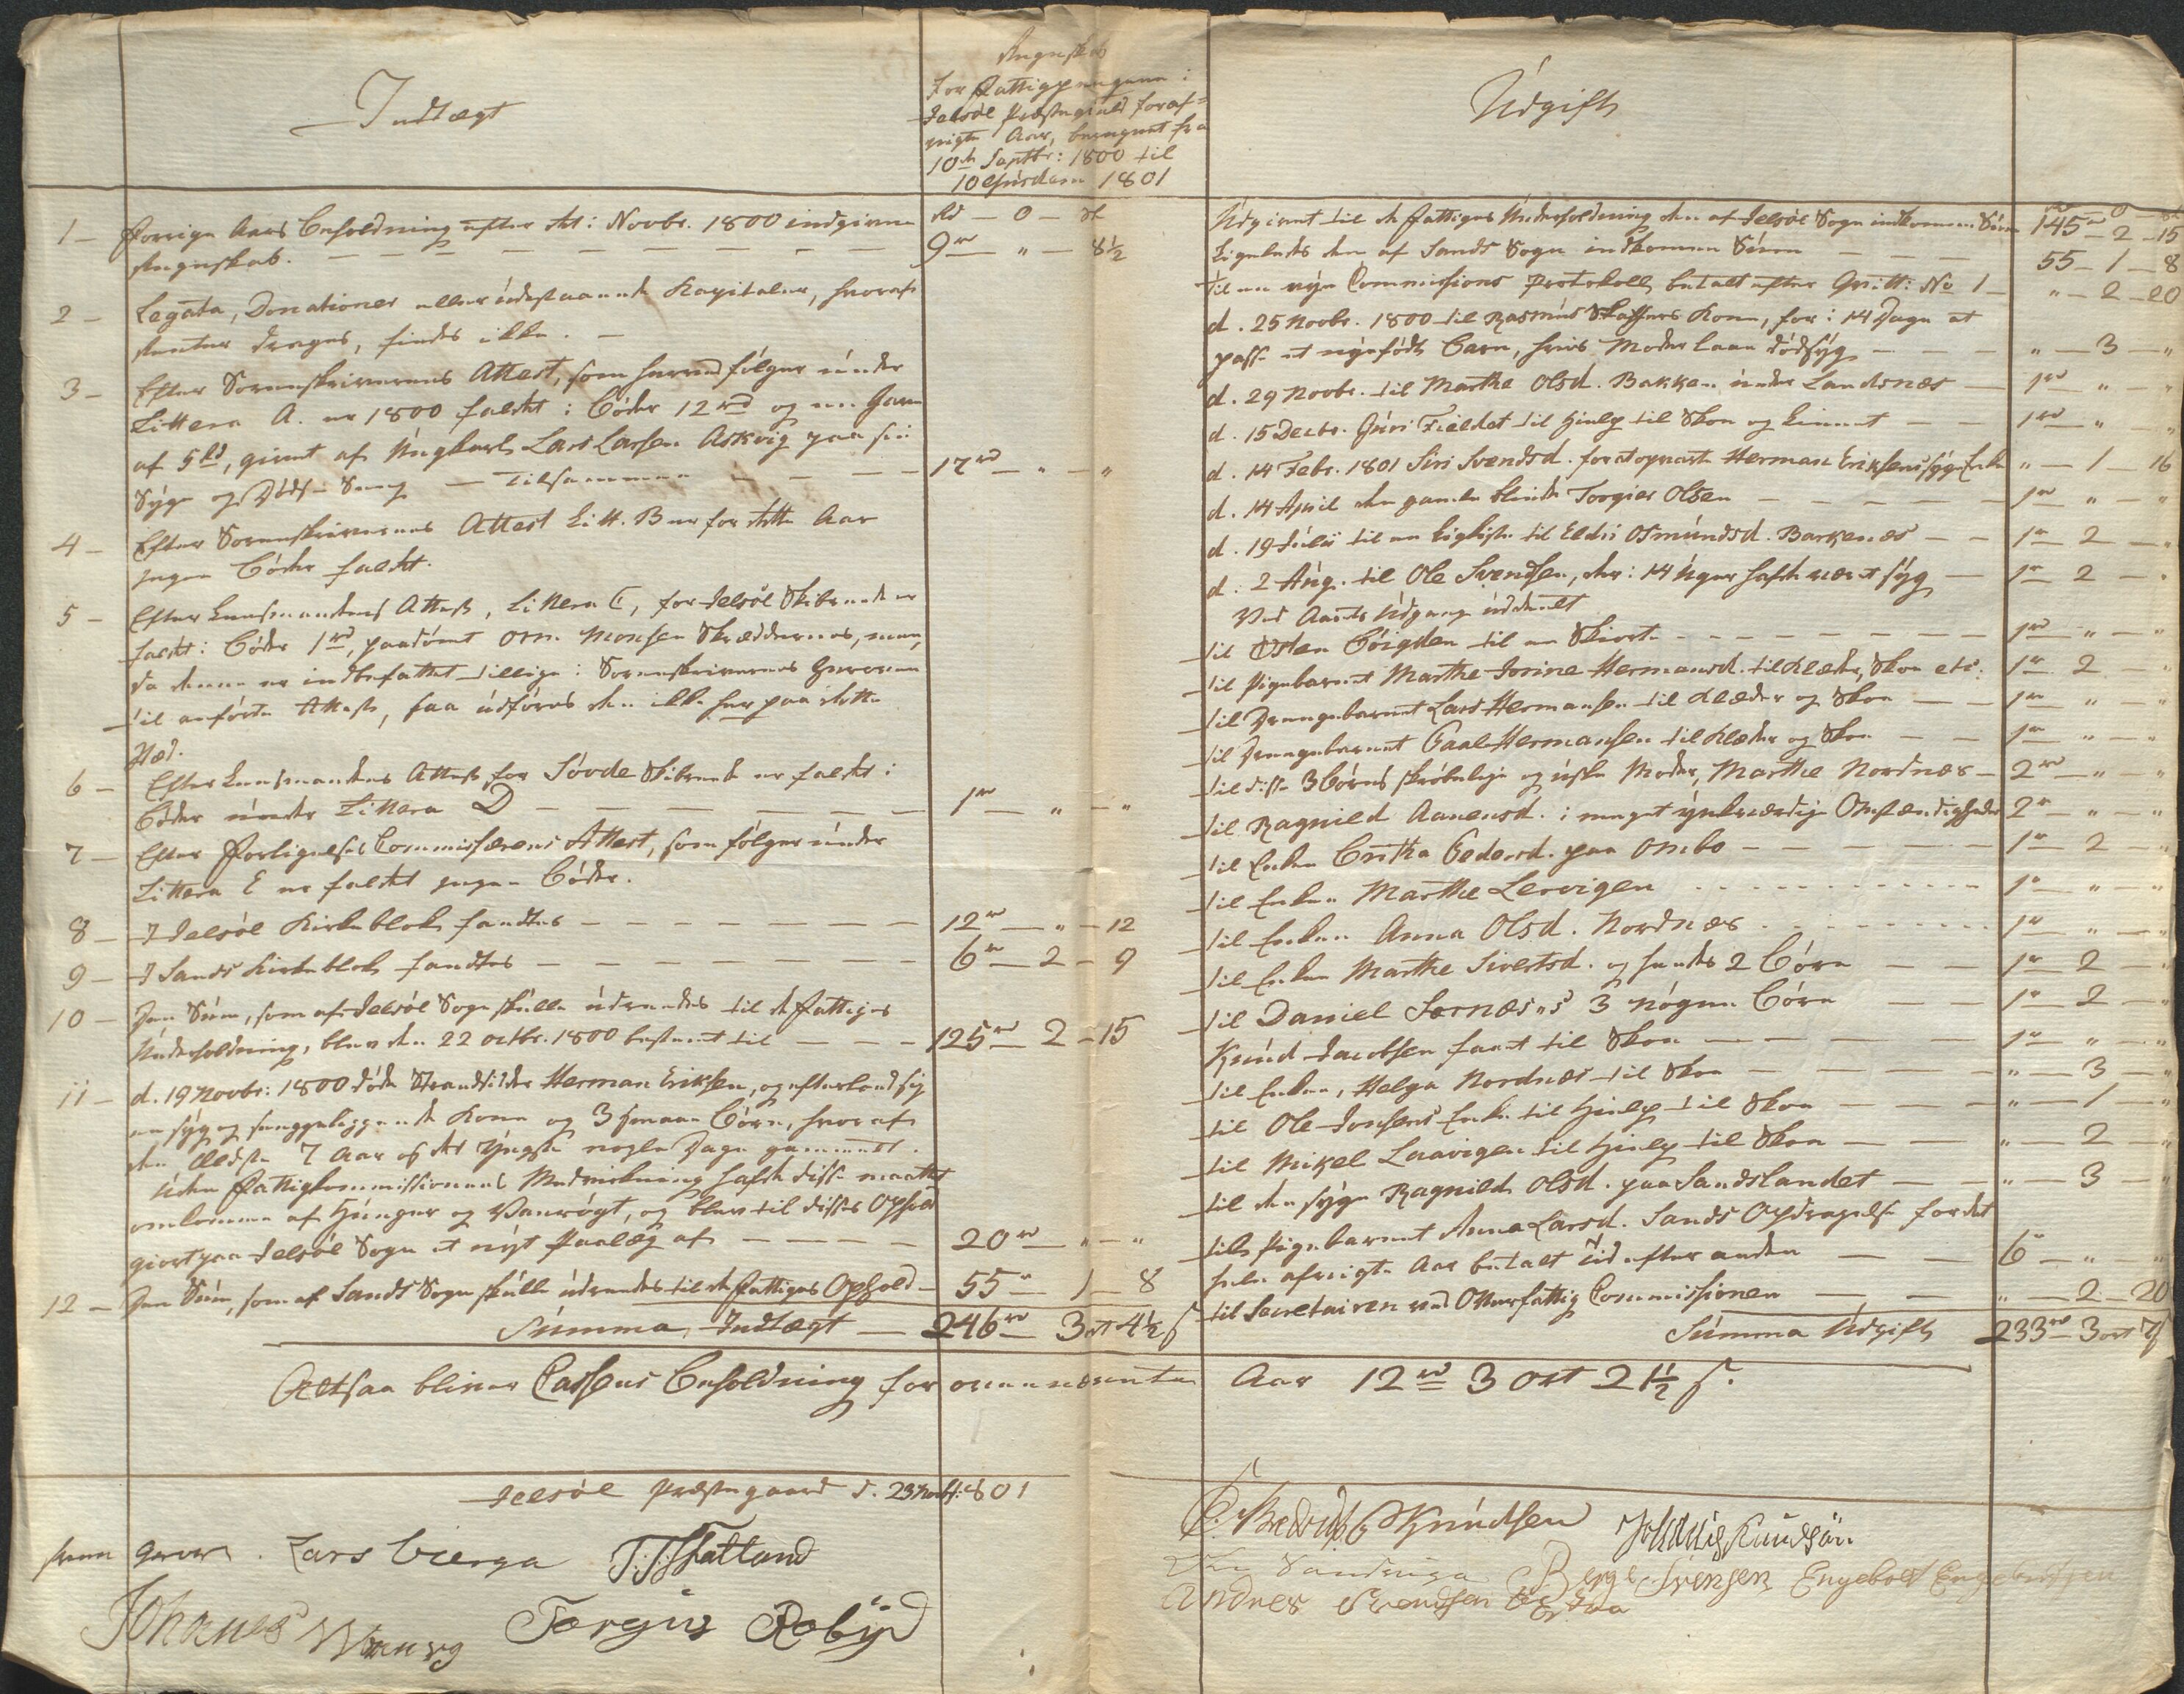 Indtægt
Regnskab
For Fattigpengene i
Jelsöe Præstegield foraf-
vigte Aar, beregnet fra
10de Septbr: 1800 til
10 ejusdem 1801
Rd - O - sk
1 - Forrige Aars Beholdning efter det i Novbr. 1800 indgivne
Regnskab. - - - 9rd - " - 8½
2 - Legata, Donationer eller udestaaende Kapitaler, hvoraf
Renter drages, findes ikke. -
3 - Efter Sorenskriverens Attest, som herved fölger under
Littera A. er 1800 faldet i Böder 12rd og en Gave
af 5rd, givet af Ungkarl Lars Larsen Askvig paa sin
Syge og Döds-Seng - Tilsammen - - 17rd - " - "
4 - Efter Sorenskriverens Attest Litt. B er for dette Aar
ingen Böder faldet.
5 - Efter Lensmandens Attest, Littera C, for Jelsöe Skibrede er
faldet i Böder 1rd, paadömt Orm Monsen Skeddernes, men,
da denne er indbefattet tillige i Sorenskriverens
til anförte Attest, saa udföres den ikke her paa dette
Sted.
6 - Efter Lensmandens Attest for Sövde Skibrede er faldet i
Böder under Littera D - - - 1rd - " - "
7 - Efter Forligelses Commissærens Attest, som fölger under
Littera E er faldet ingen Böder.
8 - I Jelsöe Kirkeblok fandtes - - - 12rd - " - 12
9 - I Sands Kirkeblok fandtes - - - 6rd - 2 - 9
10 - Den Sum, som af Jelsöe Sogn skulle udredes til de Fattiges
Underholdning, blev den 22 octbr. 1800 bestemt til - - - 125rd - 2 - 15
11 - d. 19 Novbr: 1800 döde Strandsidder Herman Eriksen, og efterlod sig
en syg og sengeliggende Kone og 3 smaae Börn, hvoraf
den Ældste 7 Aar og det Yngste nogle Dage gammelt.
Uden Fattigkommissionens Medvirkning havde disse maattet
omkomme af Hunger og Vanrögt, og blev til disses Ophold
giort paa Jelsöe Sogn et nyt Paalæg af - - - 20rd - " - "
12 - Den Sum, som af Sands Sogn skulle udredes til de Fattiges Ophold - 55" - 1 - 8
Summa Indtægt - 246rd - 3 ort 4½ s
Udgift
rd - O - sk
Udgivet til de Fattiges Underholdning den af Jelsöe Sogn indkomne Sum 145rd - 2 - 15
Ligeledes den af Sands Sogn indkomne Sum - - - 55 - 1 - 8
Til en nye Commissions Protokoll, betalt efter Qvitt: No 1 - " - 2 - 20
d. 25 Novbr. 1800 til Rasmus Kone, for i 14 Dage at
passe et nyefödt Barn, hvis Moder laae dödsyg - - - " - 3 - "
d. 29 Novbr. til Marthe Olsd. Bakken under Landsnæs - 1rd " - "
d. 15 Decbr. Guri Fieldet til Hielp til Skoe og Linnet - - 1rd - " - "
d. 14 Febr. 1801 Siri Svendsd. for at opvarte Herman Eriksens syge Enke " - 1 - 16
d. 14 April den gamle blinde Torgier Olsen - - - 1rd - " - "
d. 19 Julii til en Ligkiste til Eldri Osmundsd. Barkenæs - - 1rd - 2 - "
d. 2 Aug. til Ole Svendsen, der i 14 Uger hafde været syg - 1rd - 2 - "
Ved Aarets Udgang uddeelt
til Osten Böigden til en Skiorte - - - 1rd - " - "
til Pigebarnet Marthe Serine Hermansd. til Klæder, Skoe etc: 1rd 2 - "
til Drengebarnet Lars Hermansen til Klæder og Skoe - - 1rd - " - "
til Drengebarnet Paal Hermansen til Klæder og Skoe - - 1rd - " - "
til disse 3 Börns skröbelige og usle Moder, Marthe Nordnæs - 2rd - " - "
til Ragnild Aanensd. i meget ynkværdige Omstændigheder 2" - " - "
til Enken Britha Pedersd. paa Ombo - - - 1rd - 2 - "
til Enken Marthe Lervigen - - - 1rd - " - "
til Enken Anna Olsd. Nordnæs - - - 1rd - " - "
til Enken Marthe Sivertsd. og hendes 2 Börn - - 1rd - 2 - "
til Daniel Sørnæs's 3 nögne Börn - - 1rd - 2 - "
Knud Jacobsen faaet til Skoe - - - 1rd - " - "
til Enken, Helga Nordnæs til Skoe - - - " - 3 - "
til Ole Jonsens Enke til Hielp til Skoe - - - " - 1 - "
til Mikel Laavigen til Hielp til Skoe - - - " - 2 - "
til den syge Ragnild Olsd. paa Sandslandet - - " - 3 - "
til Pigebarnet Anna Larsd. Sands Opdragelse for det
hele afvigte Aar betalt Tid efter anden - - 6" - " - "
til Secretairen ved Overfattig Commissionen - - " - 2 - 20
Summa Udgift 233rd - 3 ort 7 s
Altsaa bliver Cassens Beholdning for ovennævnte Aar 12rd 3 ort 21½ s.
Jelsöe Præstegaard d. 23 Novbr: 1801
Lars Bierga T. T. Tatland
Johanes Torgius Robin
Knudsen Johanis Knudsön
Berge Ivensen Engebret Engebretsen
Andres Svendsen